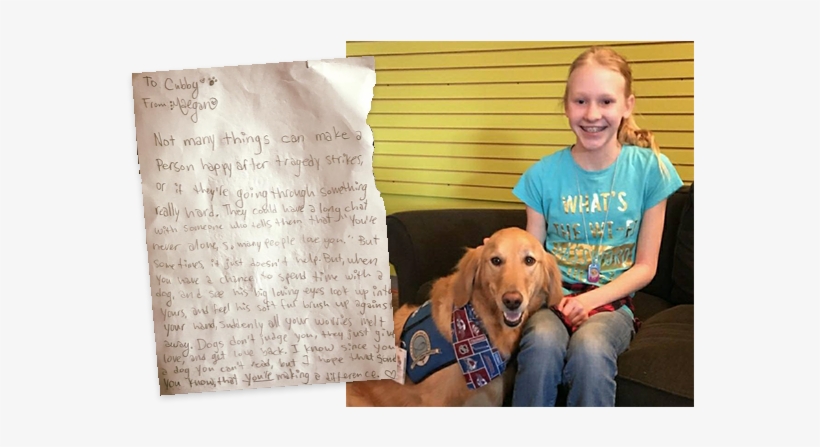 To Cubby
From: Maegan
Not many things can make a
Person happy after tragedy strikes,
or if they're going through something
really hard. They could have a long chat
with someone who tells them that "You're
never alone, so many people love you." But
sometimes it just doesn't help. But, when
you have a chance to spend time with a
dog, and see his big loving eyes look up into
yours, and feel his soft fur brush up against
your hand, suddenly all your worries melt
away. Dogs don't judge you, they just give
love, and get love back. I know since you're
a dog you can't read, but I hope that
you know that you're making a difference.
WHAT'S
THE WI-FI